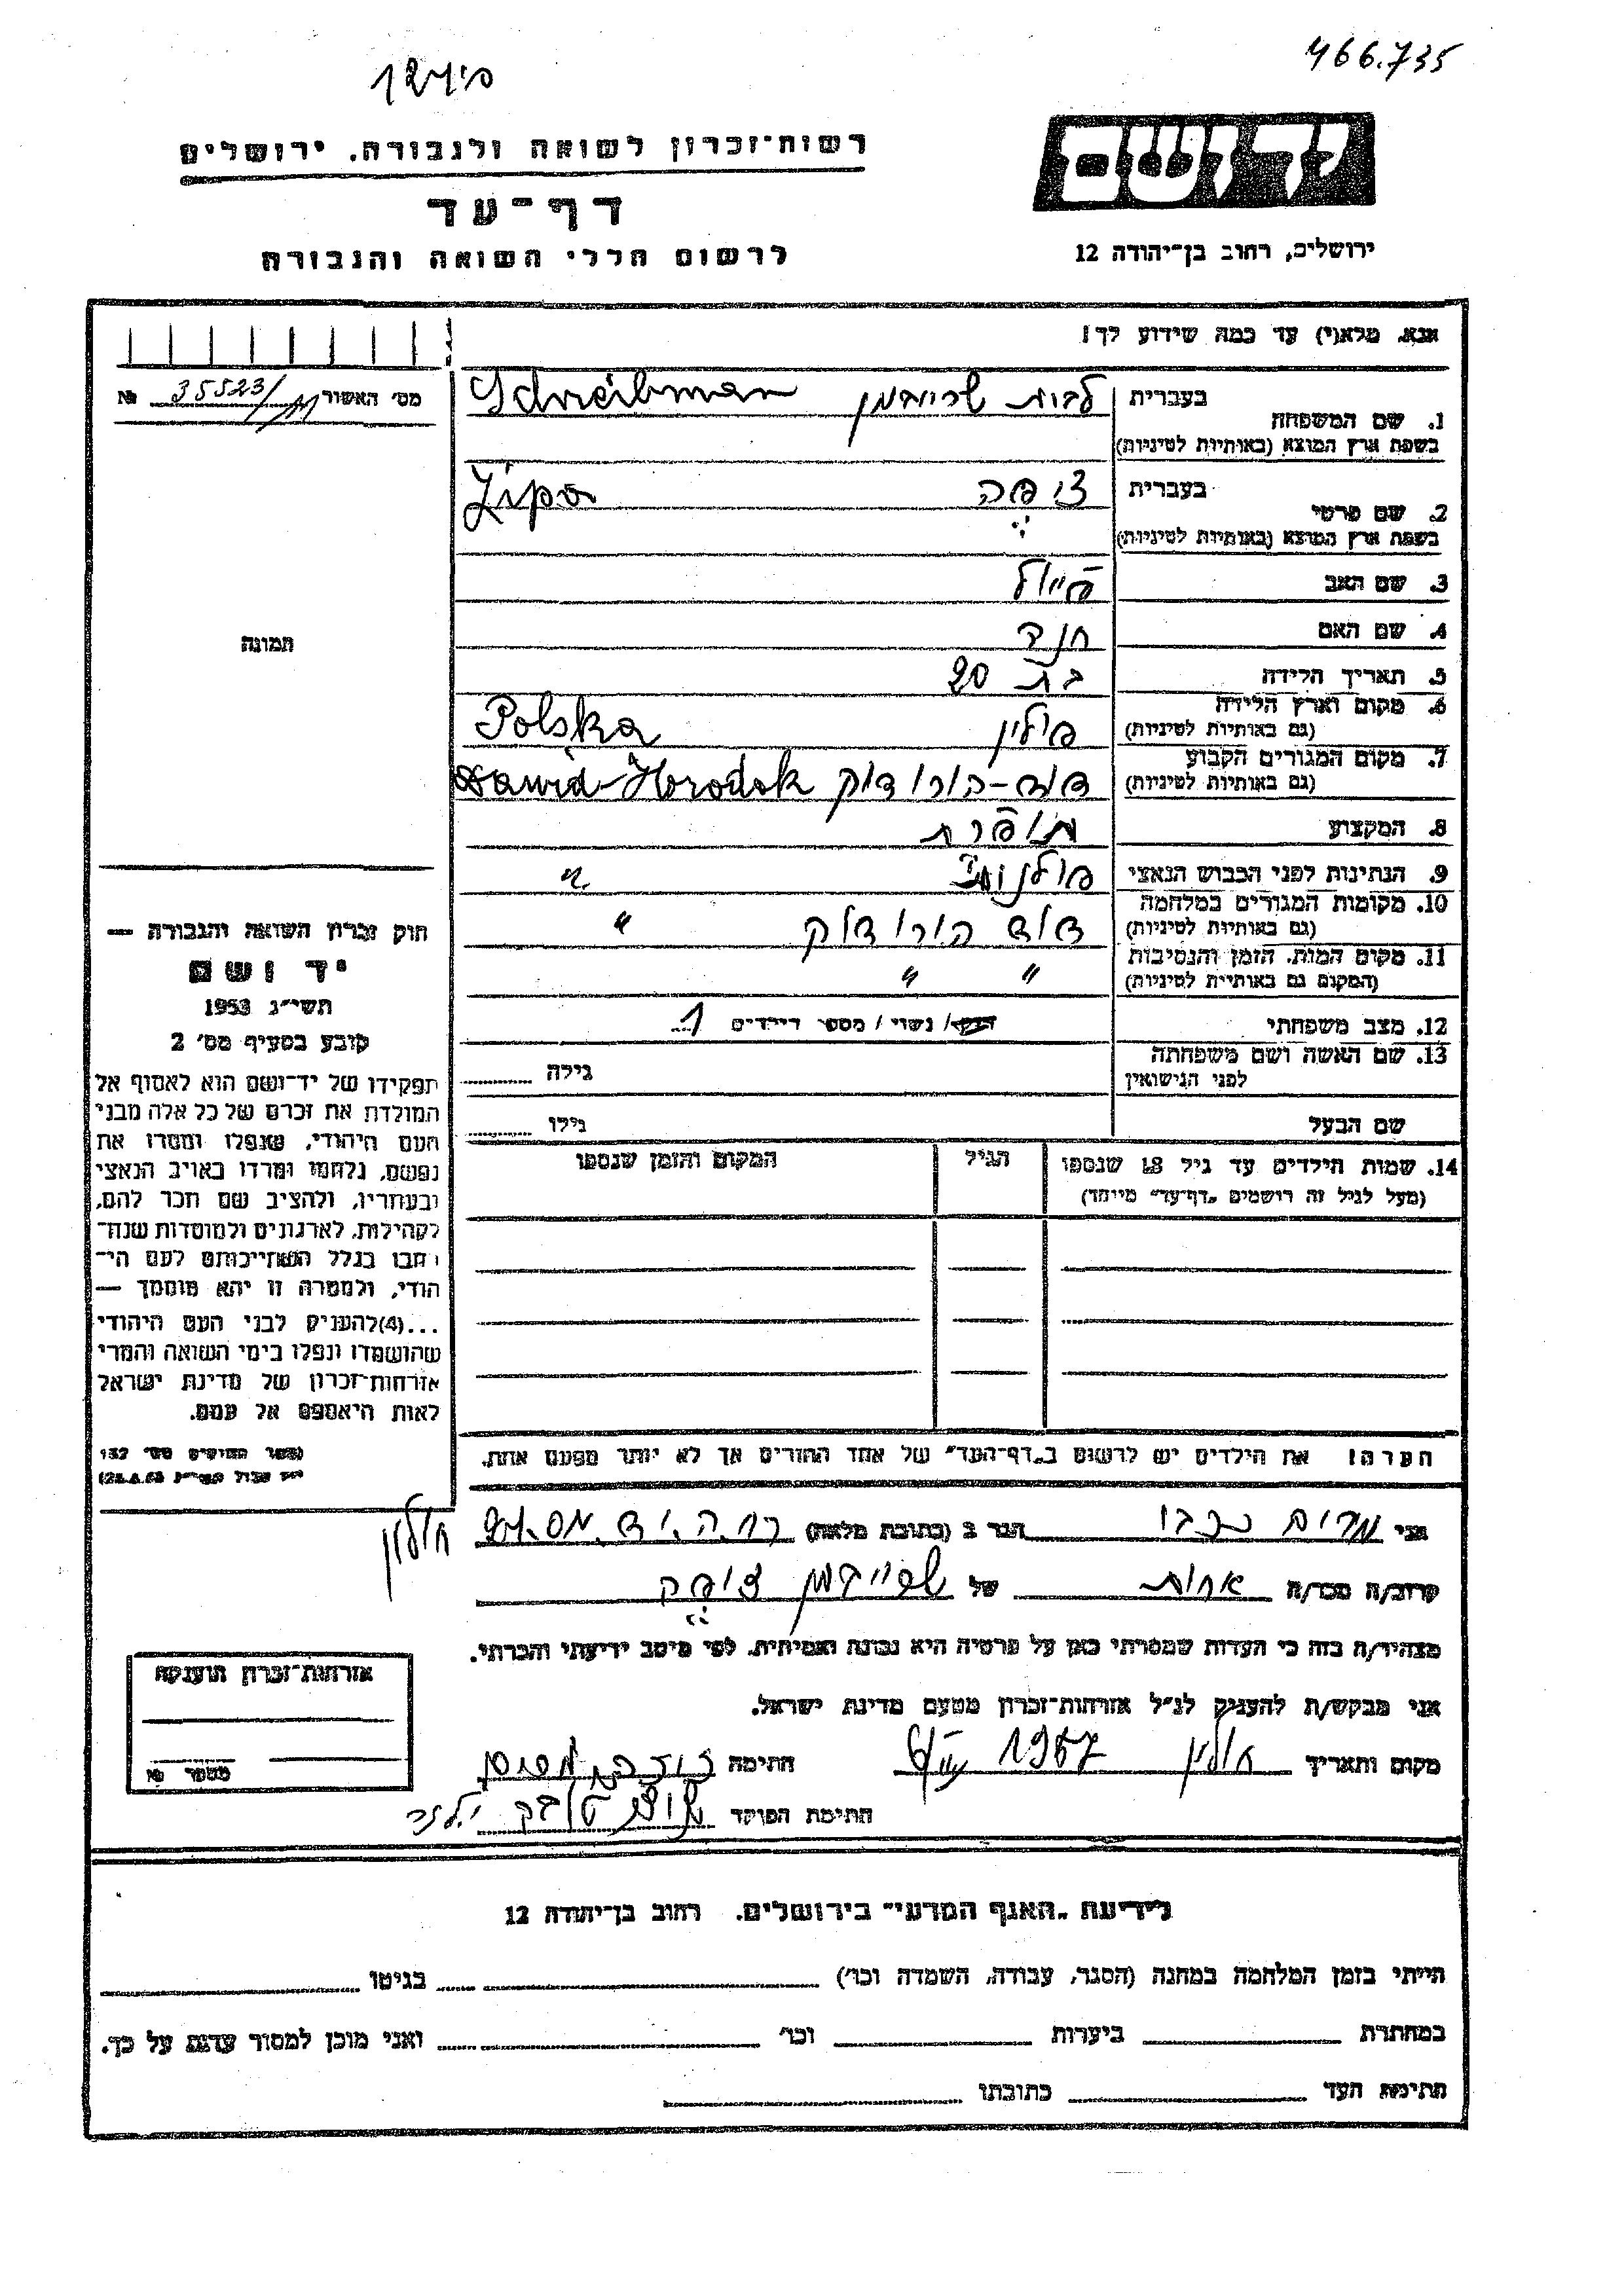 466.735
יד ושם
ירושלים, רחוב בן־יהודה 12
רשות־זכרון לשואה ולגבורה. ירושלים
דף־עד
לרשום חללי השואה והגבורה
אנא, מלא(י) עד כמה שידוע לך!
1. שם המשפחה
בעברית
לבית שרייבמן Schreibman
בשפת ארץ המוצא (באותיות לטיניות)
2. שם פרטי
בעברית
ציפה Zipa
בשפת ארץ המוצא (באותיות לטיניות)
3. שם האב
4. שם האם חנה
5. תאריך הלידה בת 20
6. מקום וארץ הלידה פולין Polska
(גם באותיות לטיניות)
7. מקום המגורים הקבוע דוד-הורודוק Dawid-Horodok
(גם באותיות לטיניות)
8. המקצוע תופרת
9. הנתינות לפני הכבוש הנאצי פולנית "
10. מקומות המגורים במלחמה דוד הורודוק "
(גם באותיות לטיניות)
11. מקום המות. הזמן והנסיבות " "
(המקום גם באותיות לטיניות)
12. מצב משפחתי רווק/ נשוי/ מספר הילדים 1
13. שם האשה ושם משפחתה גילה
לפני הנישואין
שם הבעל גילו
14. שמות הילדים עד גיל 18 שנספו הגיל המקום והזמן שנספו
(מעל לגיל זה רושמים "דף־עד" מיוחד)
הערה! את הילדים יש לרשום ב"דף־העד" של אחד ההורים אך לא יותר מפעם אחת.
מס' האשור 35523/ №
תמונה
חוק זכרון השואה והגבורה —
יד ושם
תשי"ג 1953
קובע בסעיף מס' 2
תפקידו של יד־ושם הוא לאסוף אל
המולדת את זכרם של כל אלה מבני
העם היהודי, שנפלו ומסרו את
נפשם, נלחמו ומרדו באויב הנאצי
ובעוזריו, ולהציב שם וזכר להם,
לקהילות, לארגונים ולמוסדות שנח־
רבו בגלל השתייכותם לעם הי־
הודי, ולמטרה זו יהא מוסמך —
...(4) להעניק לבני העם היהודי
שהושמדו ונפלו בימי השואה והמרי
אזרחות־זכרון של מדינת ישראל
לאות היאספם אל עמם.
אני מרים הגר ב (כתובת מלאה) חולון
קרוב/ה מכר/ה אחות של שרייבמן ציפה
מצהיר/ה בזה כי העדות שמסרתי כאן על פרטיה היא נכונה ואמיתית. לפי מיטב ידיעתי והכרתי.
אני מבקש/ת להעניק לנ"ל אזרחות־זכרון מטעם מדינת ישראל.
מקום ותאריך חולון 1957 חתימה
חתימת הפוקד
אזרחות־זכרון הוענקה
מספר №
לידיעת "האגף המדעי" בירושלים. רחוב בן־יהודה 12
הייתי בזמן המלחמה במחנה (הסגר, עבודה, השמדה וכו') בגיטו
במחתרת ביערות וכו' ואני מוכן למסור עדות על כך.
חתימת העד כתובתו